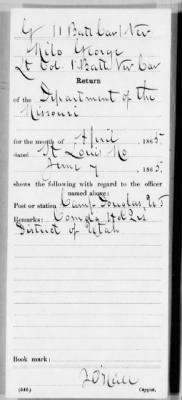 G | 1 Batt Cav | Nev
Milo George
Lt Col. 1 Batt Nev Cav
Return
of the Department of the
Missouri
for the month of April , 1865.
dated St Louis Mo
June 7 , 1865.
shows the following with regard to the officer
named above:
Post or station Camp Douglas, U T
Remarks: Comdg Hd Qrs
District of Utah
Book mark:
(646) Copyist.